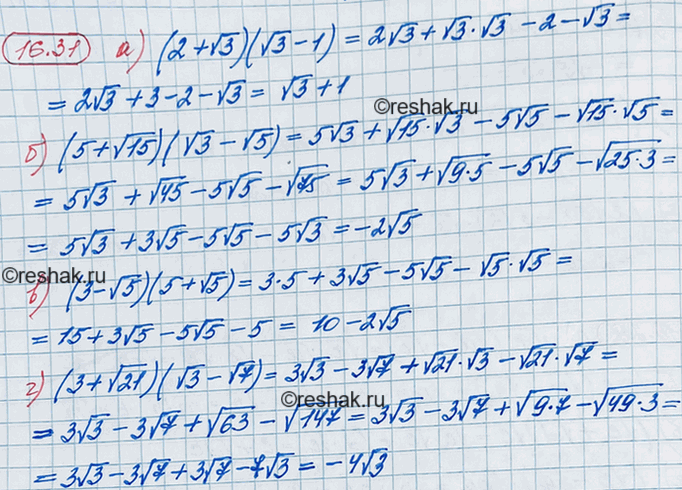 16.31 а) (2+√3)(√3-1) = 2√3 + √3·√3 - 2 - √3 =
= 2√3 + 3 - 2 - √3 = √3 + 1
©reshak.ru
б) (5+√15)(√3-√5) = 5√3 + √15·√3 - 5√5 - √15·√5 =
= 5√3 + √45 - 5√5 - √75 = 5√3 + √9·5 - 5√5 - √25·3 =
= 5√3 + 3√5 - 5√5 - 5√3 = -2√5
©reshak.ru
в) (3-√5)(5+√5) = 3·5 + 3√5 - 5√5 - √5·√5 =
= 15 + 3√5 - 5√5 - 5 = 10 - 2√5
г) (3+√21)(√3-√7) = 3√3 - 3√7 + √21·√3 - √21·√7 =
©reshak.ru
= 3√3 - 3√7 + √63 - √147 = 3√3 - 3√7 + √9·7 - √49·3 =
= 3√3 - 3√7 + 3√7 - 7√3 = -4√3